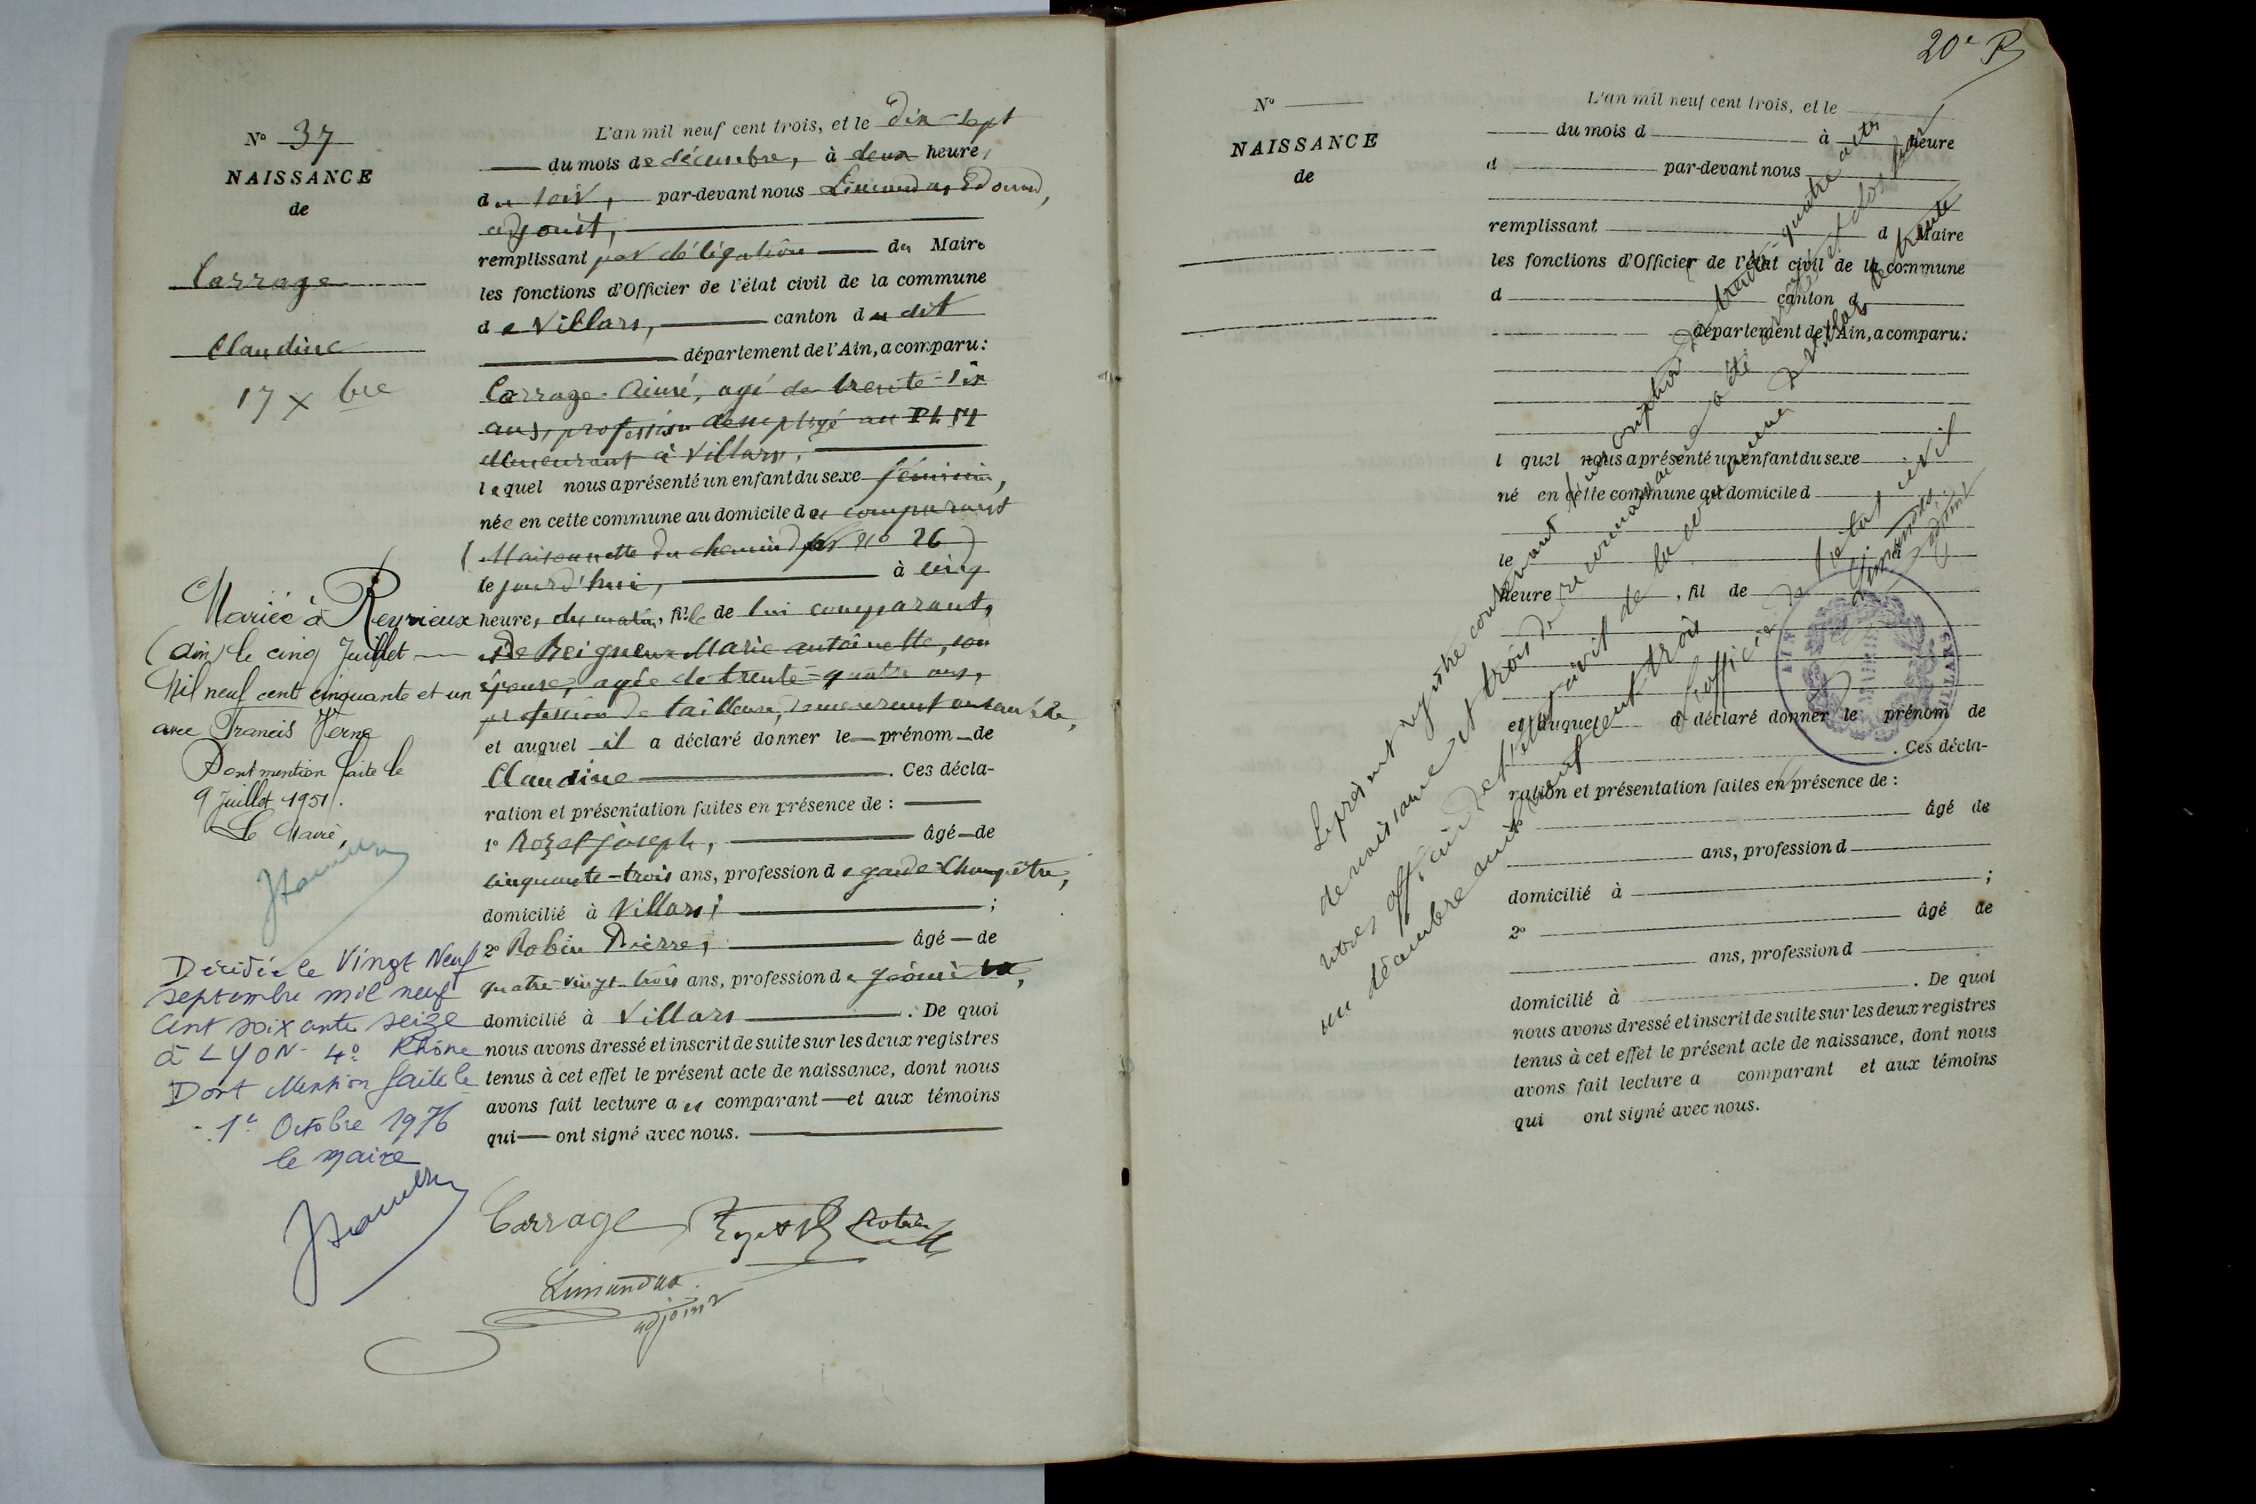 N° 37
NAISSANCE
de
Carrage
Claudine
17 Xbre
L'an mil neuf cent trois, et le dix-sept
du mois de décembre, à deux heure,
du soir, par-devant nous Limandas Edouard,
adjoint,
remplissant par délégation du Maire
les fonctions d'Officier de l'état civil de la commune
de Villars, canton du dit
département de l'Ain, a comparu:
Carrage Aimé, agé de trente-six
ans, profession d'employé au PLM
demeurant à Villars,
lequel nous a présenté un enfant du sexe féminin,
née en cette commune au domicile du comparant
(Maisonnette du chemin de fer n° 26)
le jourd'hui, à cinq
heure, du matin, fille de lui comparant,
et de Reigneux Marie antoinette, son
épouse, agée de trente-quatre ans,
profession de tailleuse, demeurant ensemble,
et auquel il a déclaré donner le prénom de
Claudine . Ces décla-
ration et présentation faites en présence de :
1° Rozet Joseph, âgé de
cinquante-trois ans, profession de garde Champêtre,
domicilié à Villars; ;
2° Robin Pierre, âgé de
quatre-vingt-trois ans, profession de géomètre,
domicilié à Villars . De quoi
nous avons dressé et inscrit de suite sur les deux registres
tenus à cet effet le présent acte de naissance, dont nous
avons fait lecture au comparant et aux témoins
qui ont signé avec nous.
Carrage Rozet Robin
Limandas
adjoint
Mariée à Reyrieux
(Ain) le cinq Juillet
Mil neuf cent cinquante et un
avec Francis Verne
Dont mention faite le
9 Juillet 1951.
Le Maire,
Décédée le Vingt Neuf
septembre mil neuf
cent soixante seize
à LYON - 4° Rhône
Dont Mention faite le
1er Octobre 1976
le Maire
20e R
N°
NAISSANCE
de
L'an mil neuf cent trois, et le
du mois d à heure
d par-devant nous
remplissant d Maire
les fonctions d'Officier de l'état civil de la commune
d canton d
département de l'Ain, a comparu:
l quel nous a présenté un enfant du sexe
né en cette commune au domicile d
le
heure , fil de
et auquel a déclaré donner le prénom de
. Ces décla-
ration et présentation faites en présence de :
1° âgé de
ans, profession d
domicilié à ;
2° âgé de
ans, profession d
domicilié à . De quoi
nous avons dressé et inscrit de suite sur les deux registres
tenus à cet effet le présent acte de naissance, dont nous
avons fait lecture a comparant et aux témoins
qui ont signé avec nous.
Le présent registre contenant l'inscription de trente-quatre actes
de naissance et trois de reconnaissance a été arrêté et clos par
nous officier de l'état civil de la commune de Villars le trente
un décembre mil neuf cent trois
L'officier de l'état civil
Limandas
adjoint
MAIRIE
VILLARS
AIN